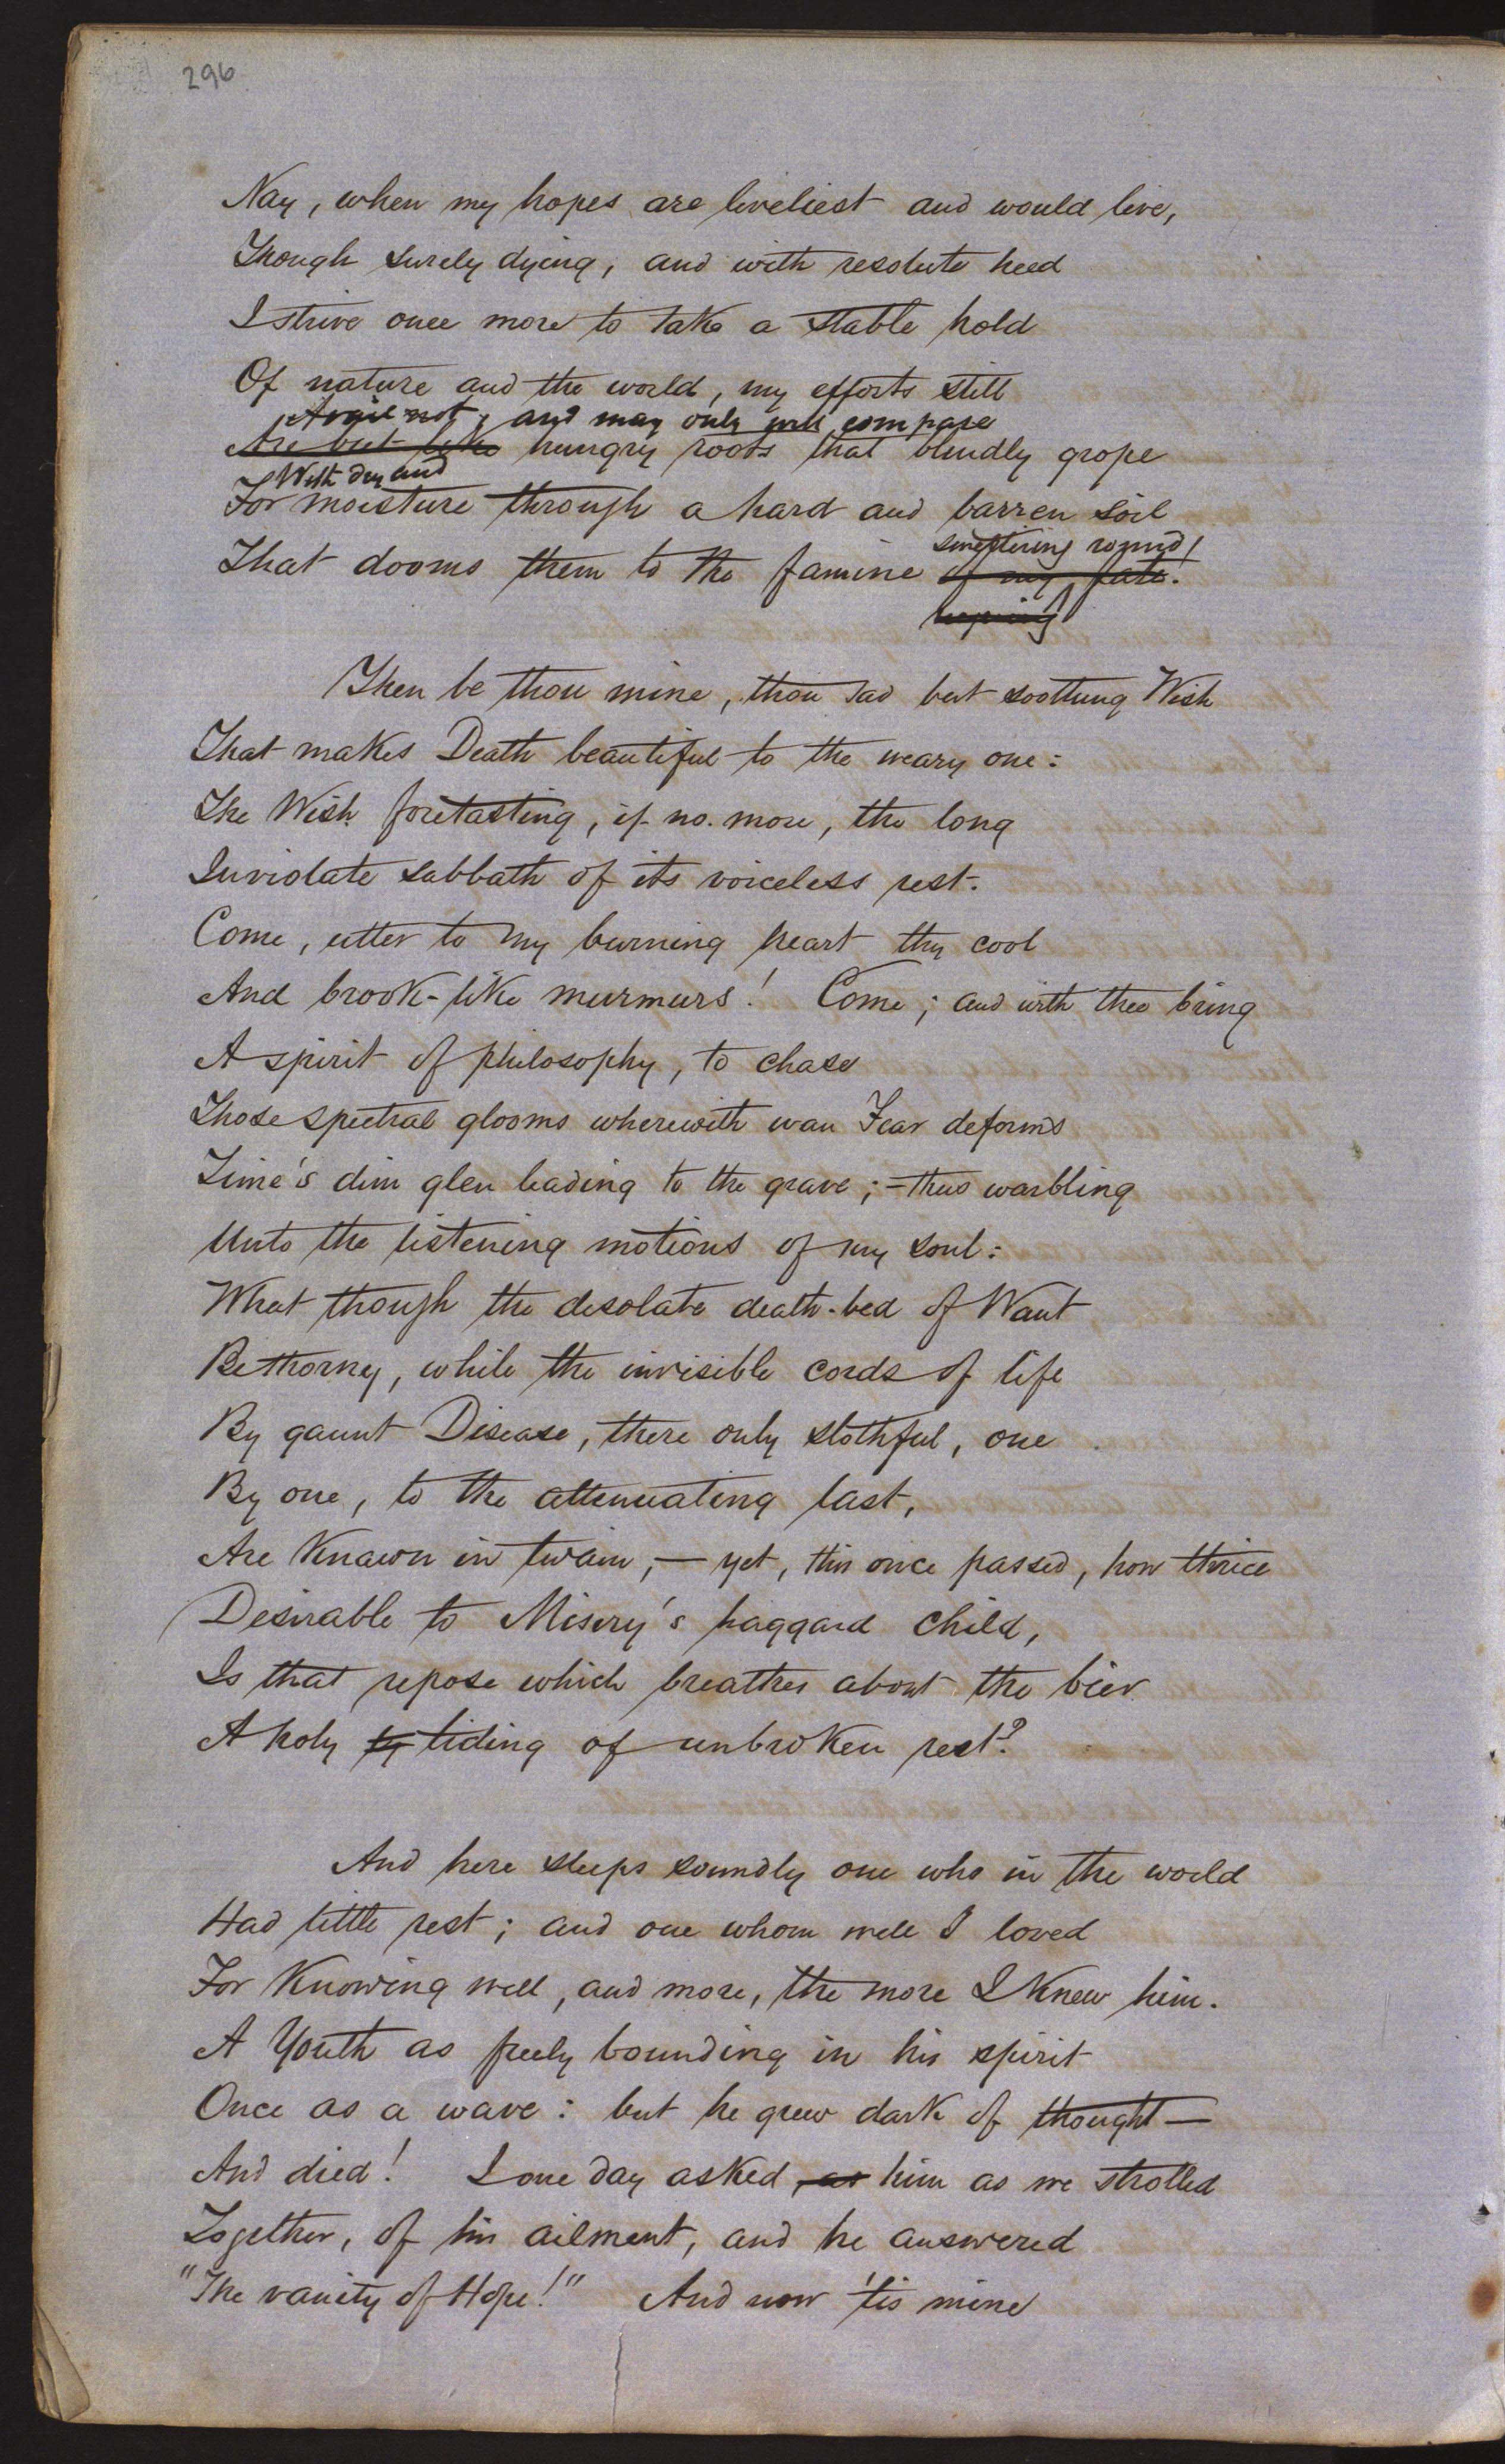 296
Nay, when my hopes are liveliest and would live,
Though surely dying, and with resolute heed
I strive once more to take a stable hold
Of nature and the world, my efforts still
Avail not, and may only well compare
Are but like hungry roots that blindly grope
With dry and
For moisture through a hard and barren soil
smothering round!
That dooms them to the famine of my fate.
Then be thou mine, thou sad but soothing Wish
That makes Death beautiful to the weary one:
The Wish foretasting, if no more, the long
Inviolate sabbath of its voiceless rest.
Come, utter to my burning heart thy cool
And brook-like murmurs! Come; and with thee bring
A spirit of philosophy, to chase
Those spectral glooms wherewith wan Fear deforms
Time's dim glen leading to the grave;—thus warbling
Unto the listening motions of my soul:
What though the desolate death-bed of Want
Be thorny, while the invisible cords of life
By gaunt Disease, there only slothful, one
By one, to the attenuating last,
Are knawn in twain,— yet, this once passed, how thrice
Desirable to Misery's haggard child,
Is that repose which breathes about the bier
A holy ty tiding of unbroken rest?
And here sleeps soundly one who in the world
Had little rest; and one whom well I loved
For Knowing well, and more, the more I Knew him.
A Youth as freely bounding in his spirit
Once as a wave: but he grew dark of thought—
And died! I one day asked, as him as we strolled
Together, of his ailment, and he answered
"The vanity of Hope!" And now 'tis mine